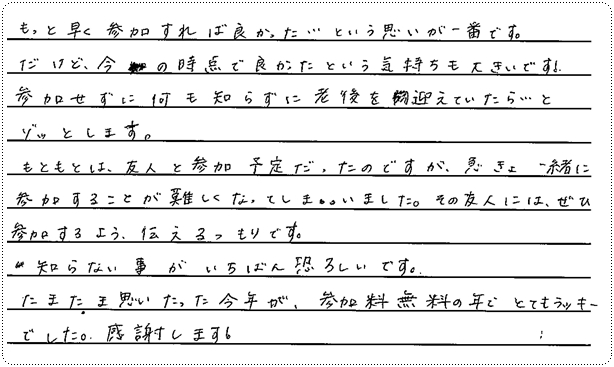 もっと早く参加すれば良かった…という思いが一番です。
だけど、今の時点で良かったという気持ちも大きいです!
参加せずに何も知らずに老後を迎えていたら…と
ゾッとします。
もともとは、友人と参加予定だったのですが、急きょ一緒に
参加することが難しくなってしまいました。その友人には、ぜひ
参加するよう、伝えるつもりです。
"知らない事がいちばん恐ろしいです。
たまたま思いたった今年が、参加料無料の年でとてもラッキー
でした。感謝します!